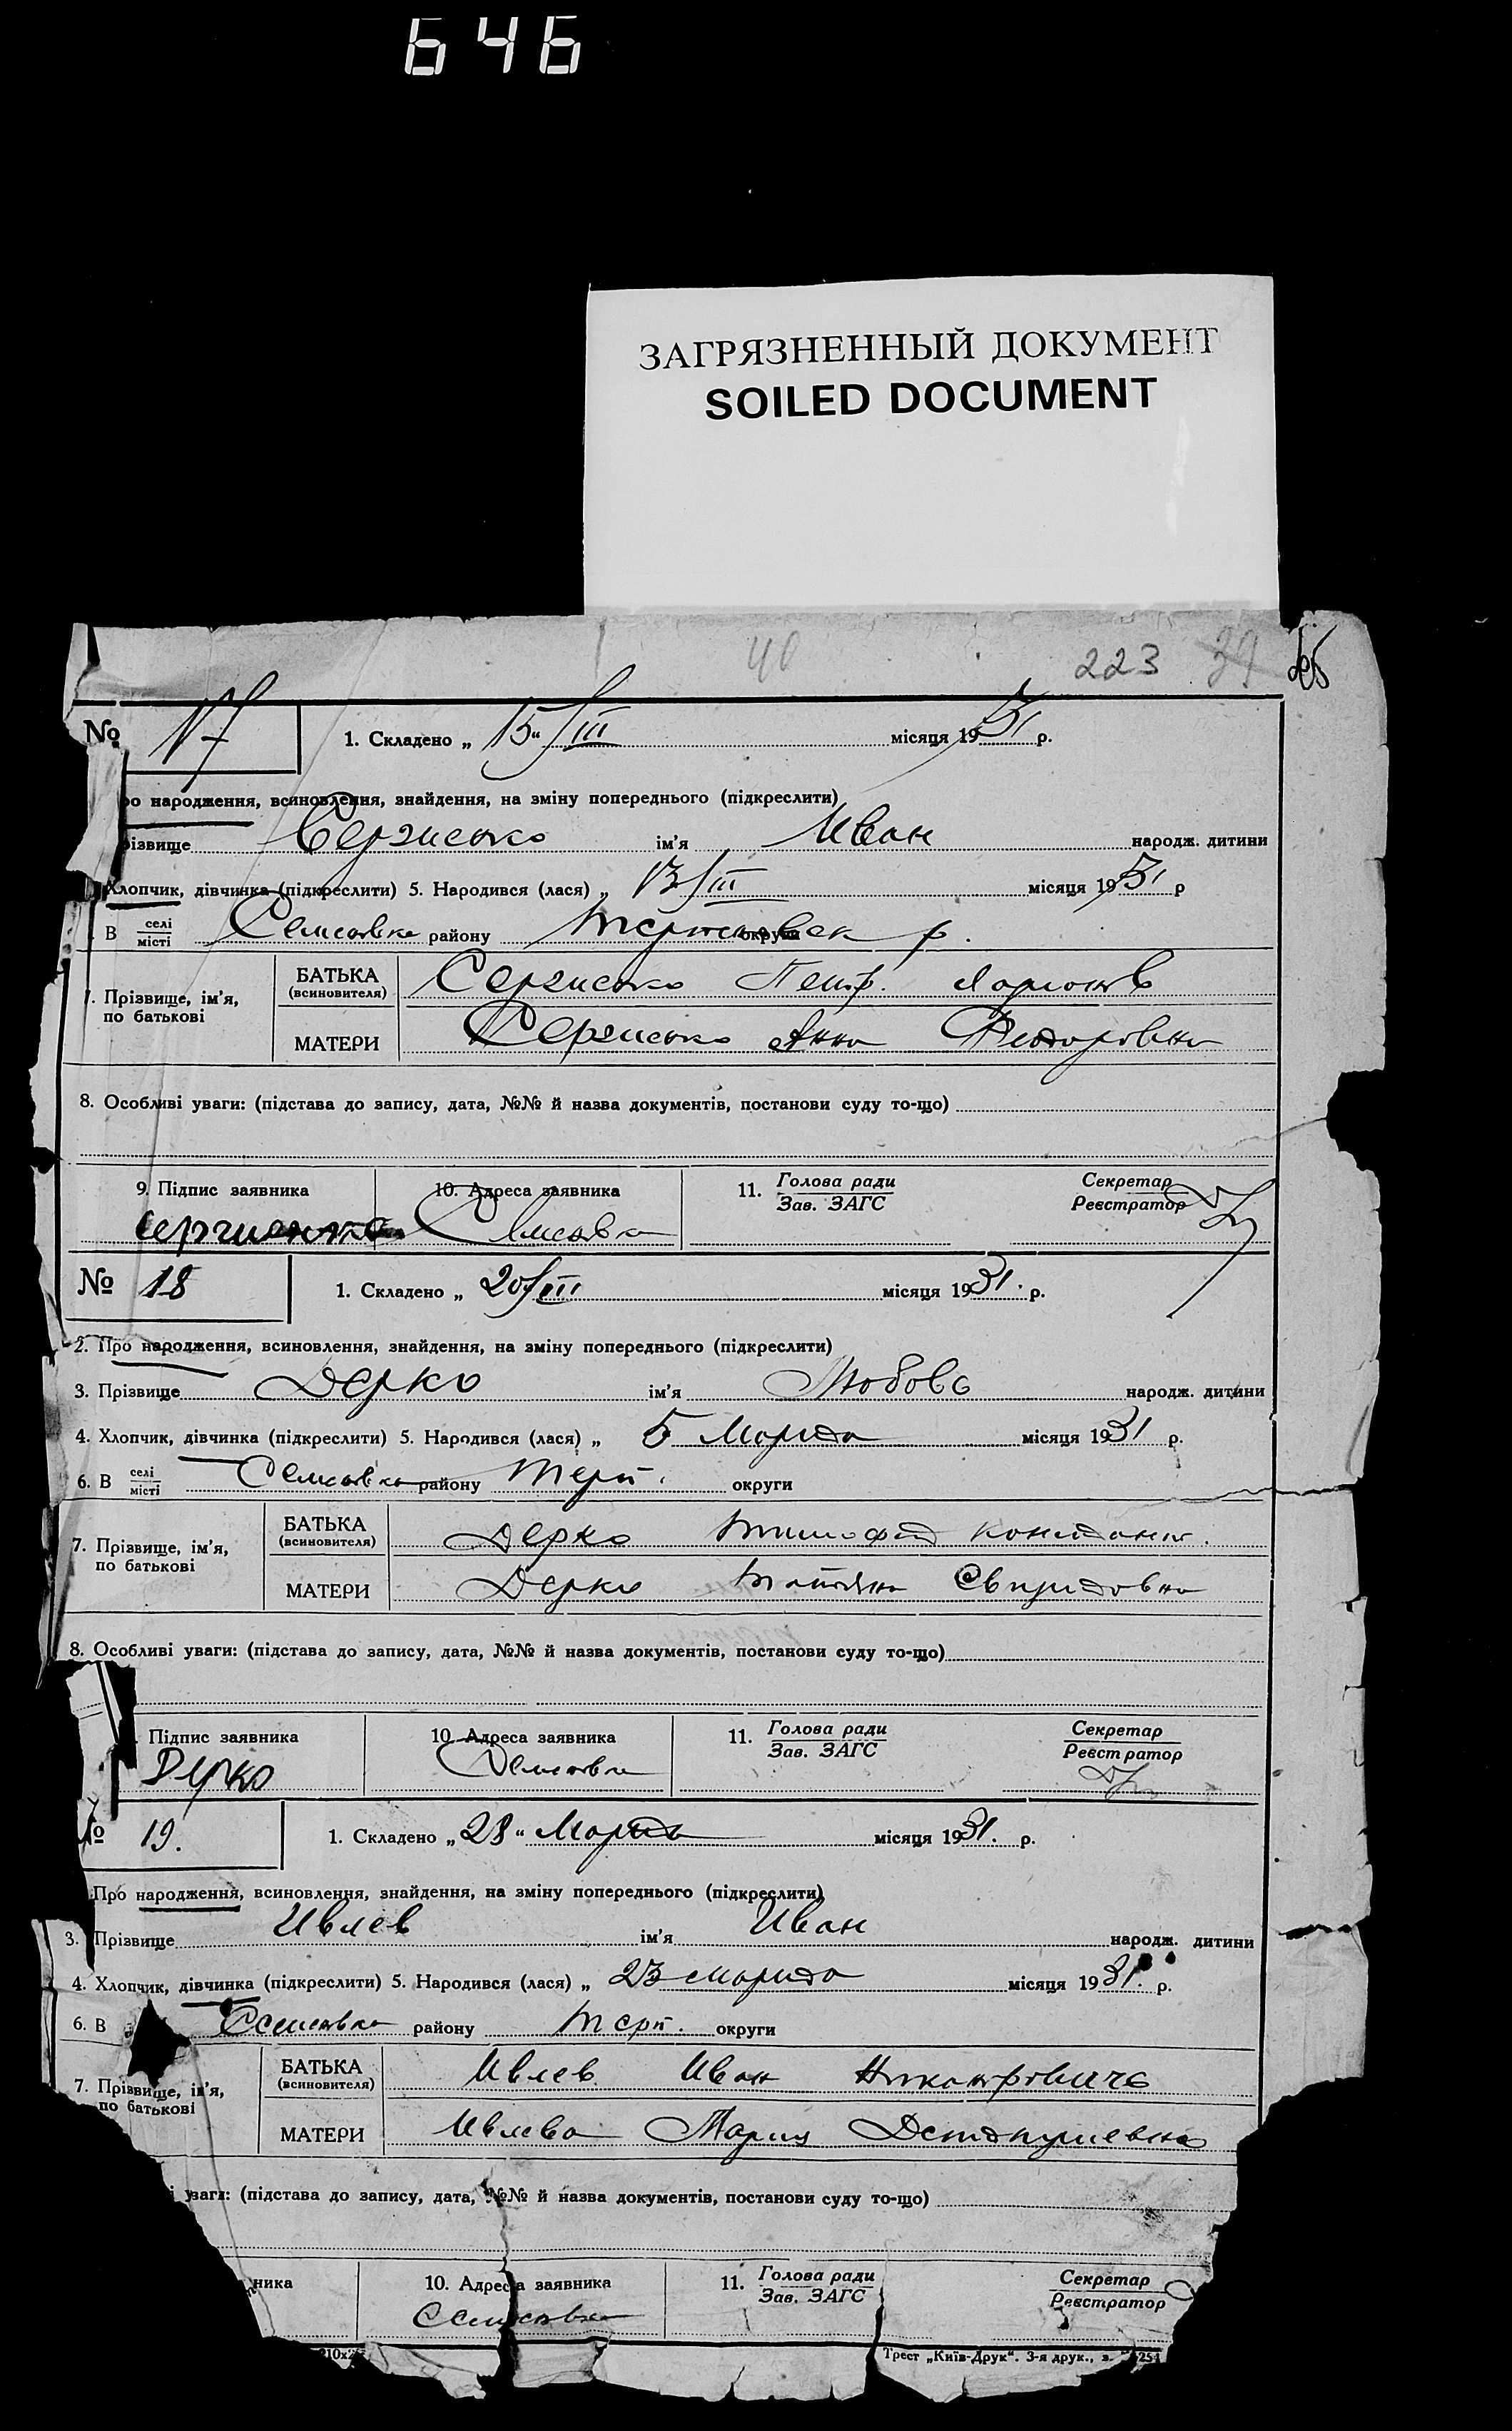 646
ЗАГРЯЗНЕННЫЙ ДОКУМЕНТ
SOILED DOCUMENT
40 223 39
№ 17 1. Складено „ 15 “ /III місяця 1931 р.
ро народження, всиновлення, знайдення, на зміну попереднього (підкреслити)
різвище Сергиенко ім'я Иван народж. дитини
Хлопчик, дівчинка (підкреслити) 5. Народився (лася) „ 13/III місяця 1931 р
В селі/місті Семеновка району округи р.
7. Прізвище, ім'я, по батькові БАТЬКА (всиновителя) Сергиенко Петр. Ларионов
МАТЕРИ Сергиенко Анна Федоровна
8. Особливі уваги: (підстава до запису, дата, №№ й назва документів, постанови суду то-що)
9. Підпис заявника 10. Адреса заявника 11. Голова ради/Зав. ЗАГС Секретар/Реєстратор
Сергиенко Семеновка
№ 18 1. Складено „ 20/III місяця 1931. р.
2. Про народження, всиновлення, знайдення, на зміну попереднього (підкреслити)
3. Прізвище Дерко ім'я Любовь народж. дитини
4. Хлопчик, дівчинка (підкреслити) 5. Народився (лася) „ 5 Марта місяця 1931 р.
6. В селі/місті Семеновка району Терп. округи
7. Прізвище, ім'я, по батькові БАТЬКА (всиновителя) Дерко Тимофей
МАТЕРИ Дерко Татяна Свиридовна
8. Особливі уваги: (підстава до запису, дата, №№ й назва документів, постанови суду то-що)
Підпис заявника 10. Адреса заявника 11. Голова ради/Зав. ЗАГС Секретар/Реєстратор
Дерко Семеновка
№ 19. 1. Складено „ 28 “ Марта місяця 1931. р.
Про народження, всиновлення, знайдення, на зміну попереднього (підкреслити)
3. Прізвище Ивлев ім'я Иван народж. дитини
4. Хлопчик, дівчинка (підкреслити) 5. Народився (лася) „ 23 Марта місяця 1931. р.
6. В Семеновка району Терп. округи
7. Прізвище, ім'я, по батькові БАТЬКА (всиновителя) Ивлев Иван Никанорович
МАТЕРИ Ивлева Мария
і уваги: (підстава до запису, дата, №№ й назва документів, постанови суду то-що)
ника 10. Адреса заявника 11. Голова ради/Зав. ЗАГС Секретар/Реєстратор
Семеновка
Трест „Київ-Друк“. 3-я друк., з.